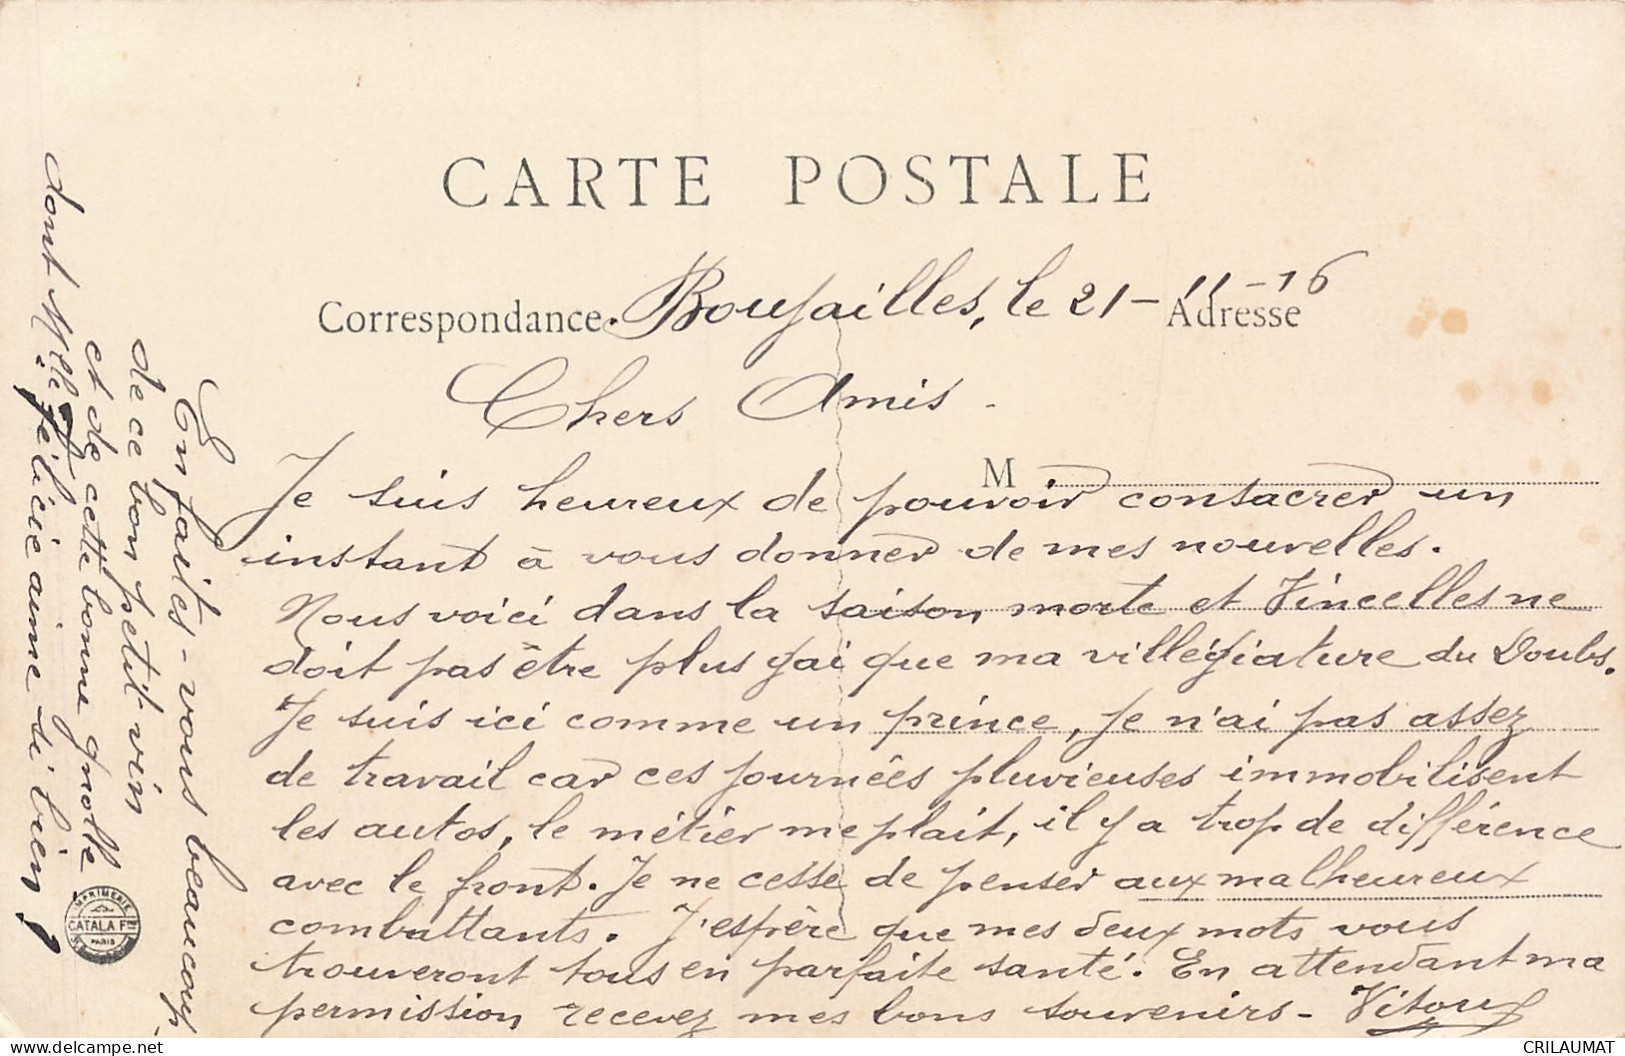 CARTE POSTALE
Correspondance. Boujailles, le 21-11-16
Adresse
Chers Amis -
M
Je suis heureux de pouvoir consacrer un
instant à vous donner de mes nouvelles.
Nous voici dans la saison morte et Vincelles ne
doit pas être plus gai que ma villégiature du Doubs.
Je suis ici comme un prince, je n'ai pas assez
de travail car ces journées pluvieuses immobilisent
les autos, le métier me plait, il y a trop de différence
avec le front. Je ne cesse de penser aux malheureux
combattants. J'espère que mes deux mots vous
trouveront tous en parfaite santé. En attendant ma
permission recevez mes bons souvenirs - Vitoux
En faites-vous beaucoup
de ce bon petit vin
et de cette bonne gnolle
dont Mlle Félicie aime si bien ?
IMPRIMERIE
CATALA F
PARIS
www.delcampe.net
CRILAUMAT